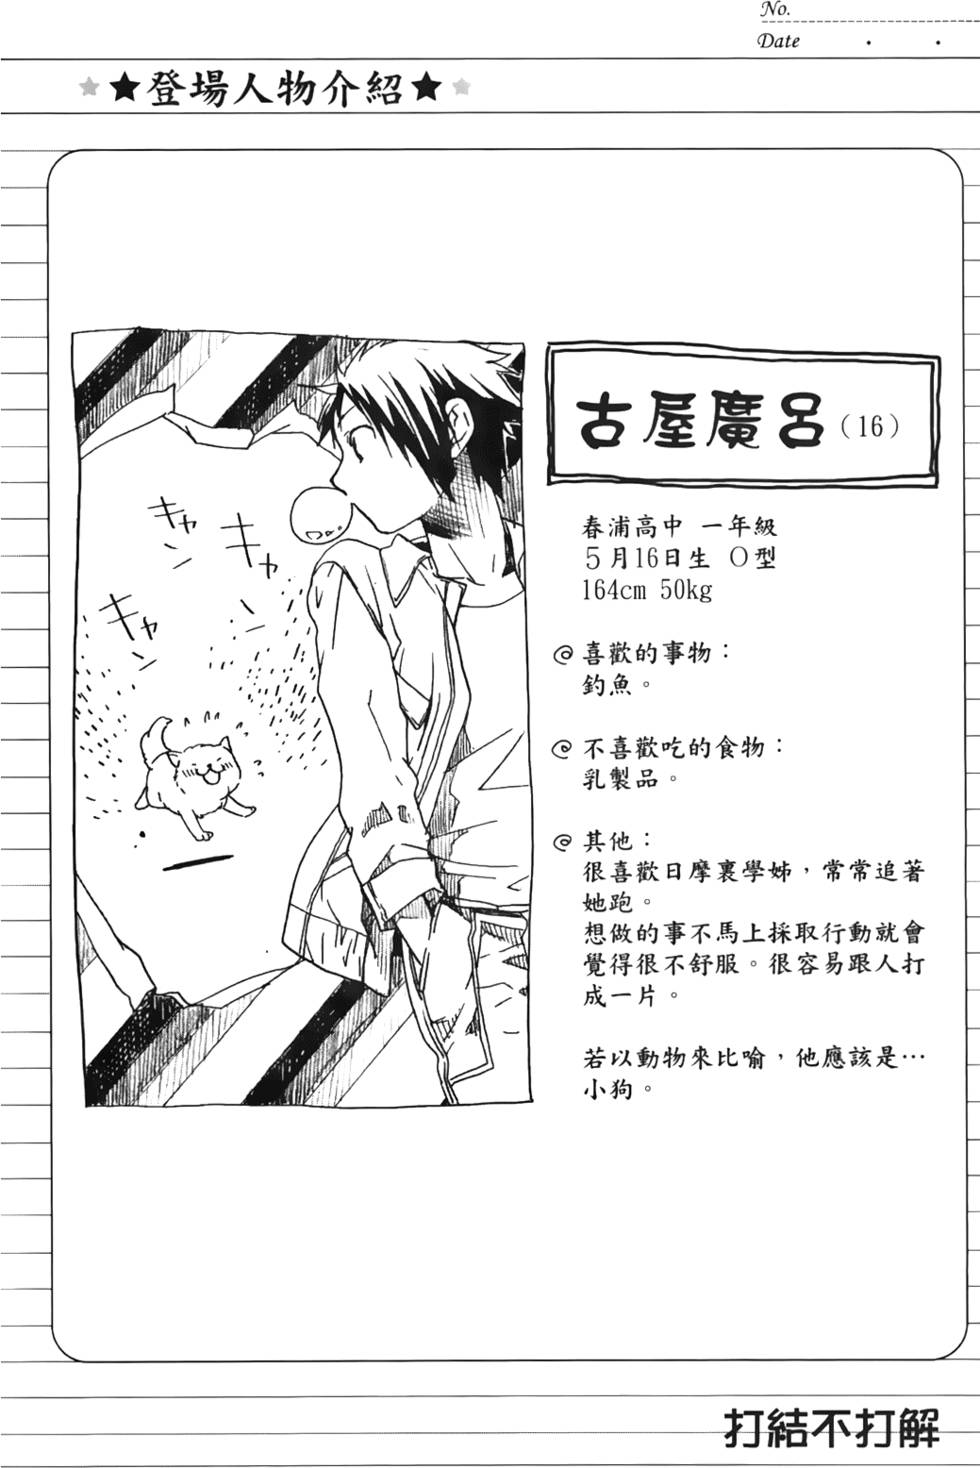 No.
Date
★★登場人物介紹★★
古屋廣呂（16）
春浦高中 一年級
5月16日生 O型
164cm 50kg
喜歡的事物：
釣魚。
不喜歡吃的食物：
乳製品。
其他：
很喜歡日摩裏學姊，常常追著
她跑。
想做的事不馬上採取行動就會
覺得很不舒服。很容易跟人打
成一片。
若以動物來比喻，他應該是…
小狗。
キャン
キャン
キャン
打結不打解